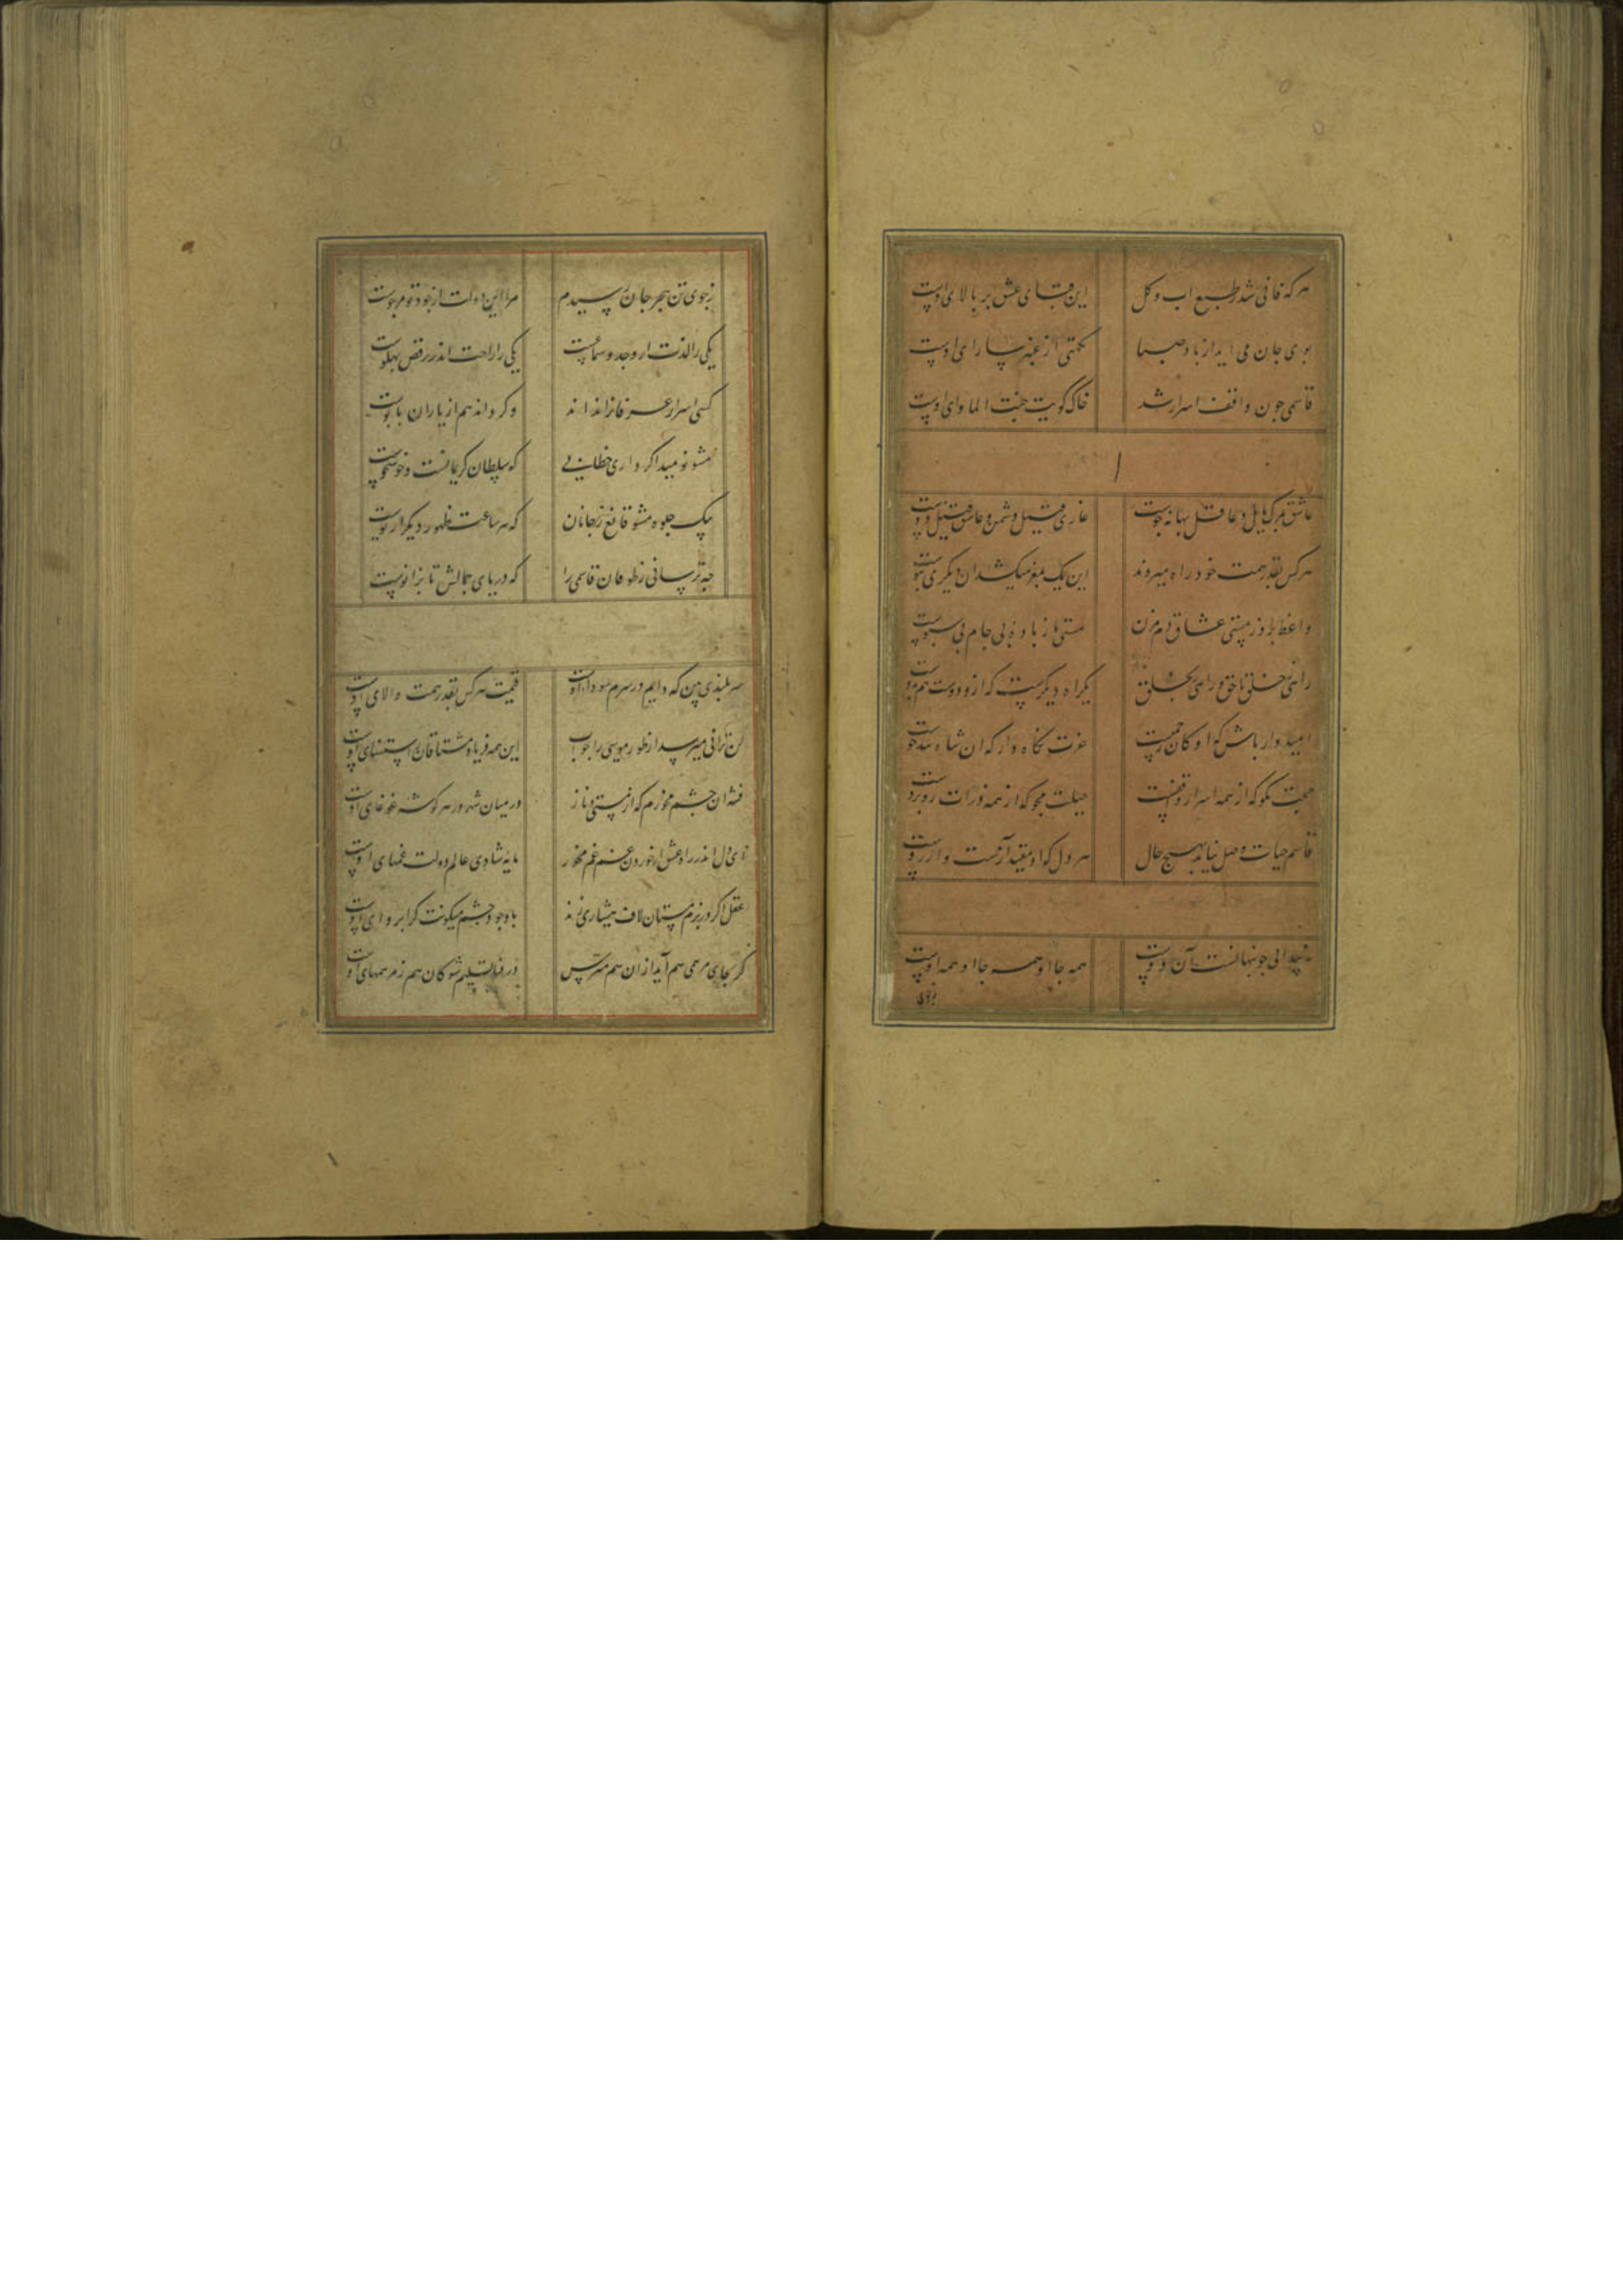 هر که فانی شد ز طبع اب و کل این قبای عشق بر بالای اوست
بوی جان می اید از باد صبا نکهتی از عنبر سارای اوست
قاسمی جون واقف اسرار شد خاک کویت جنت الماوای اوست
عاشق بمرک مایل و عاقل بهانه جوست غازی قتیل دشمن و عاشق قتیل دوست
هر کس بقدر همت خود راه میبرند این یک بمغز میکشد ان دیکری بپوست
واعظ برو ز مستی عشاق دم مزن مستی ما ز باده بی جام بی سبوست
راهی ز خلق تا حق و راهی بخلق یکراه دیکرست که از دوست هم بدوست
امیدوار باش که او کان رحمتست عزت نکاه دار که ان شاه تندخوست
حجت مکو که از همه اسرار واقفست حیلت مجو که از همه ذرات روبروست
قاسم حیات وصل نیابد بهیج حال هر دل که او مقید آزست و ارزوست
بپیدایی جو پنهانست آن دوست همه جا او همه جا او همه اوست
زجوی
زجوی تن ببحر جان رسیدم مرا این دولت از جود تو مرجوست
یکی را لذت از وجد و سماعست یکی را راحت اندر رقص پهلوست
کسی اسرار عرفانرا نداند وکر داند هم از یاران بابوست
مشو نومید اکر داری خطایی که سلطان کریمانست و خوشخوست
بیک جلوه مشو قانع ز جانان که هر ساعت ظهور دیکر از نوست
جه ترسانی ز طوفان قاسمی را که دریای جمالش تا بزانوست
سر بلندی بین که دایم در سرم سودای اوست قیمت هر کس بقدر همت والای اوست
لن ترانی میرسد از طور موسی را جواب این همه فریاد مشتاقان ز استغنای اوست
فتنه ان جشم مخمورم که از مستی و ناز در میان شهر در هر کوشه غوغای اوست
ای دل اندر راه عشق از خوردن غم غم مخور مایه شادی عالم دولت غمهای اوست
عقل اکر در بزم مستان لاف هشیاری زند با وجود جشم میکونت کرا بروای اوست
کر بجای مرهمی هم آید از ان هم مترس در فنا تسلیم شو کان هم ز مرهمهای اوست